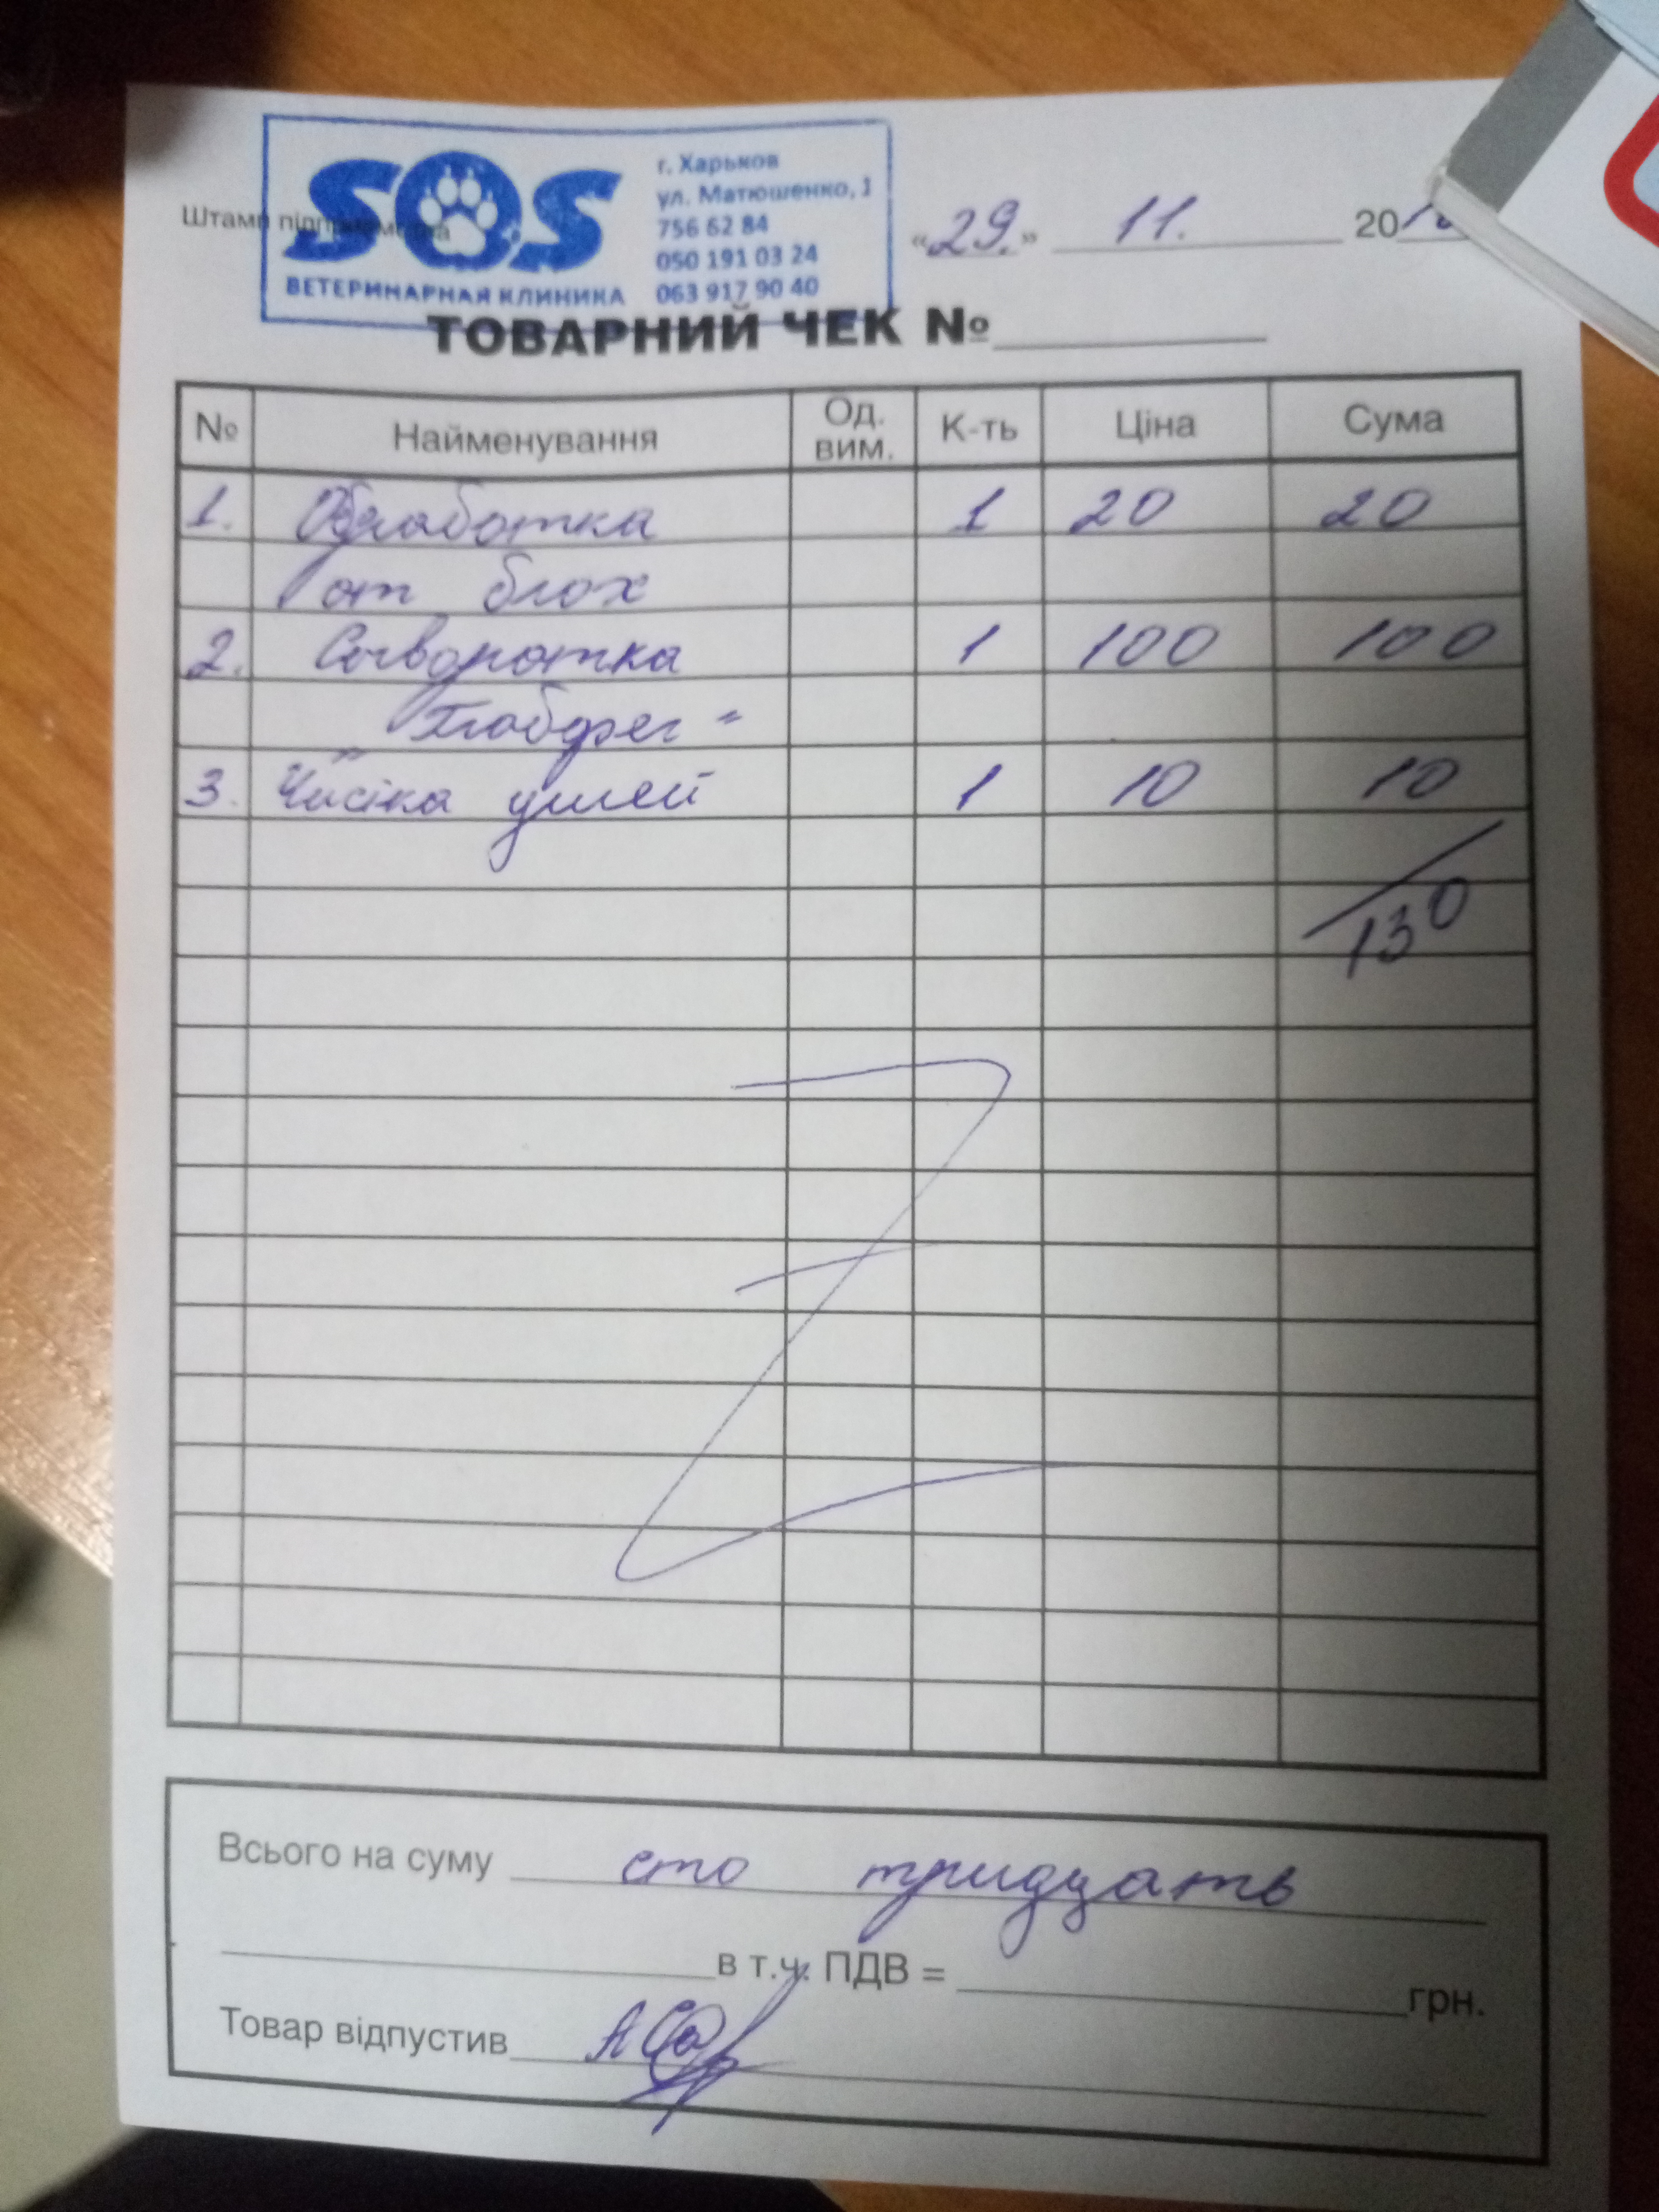 Штамп підприємства
SOS
ВЕТЕРИНАРНАЯ КЛИНИКА
г. Харьков
ул. Матюшенко, 1
756 62 84
050 191 03 24
063 917 90 40
«29.» 11. 20
ТОВАРНИЙ ЧЕК №
№ Найменування Од. вим. К-ть Ціна Сума
1. Обработка 1 20 20
от блох
2. Сыворотка 1 100 100
"Глобфел"
3. Чистка ушей 1 10 10
130
Всього на суму сто тридцать
в т.ч. ПДВ = грн.
Товар відпустив